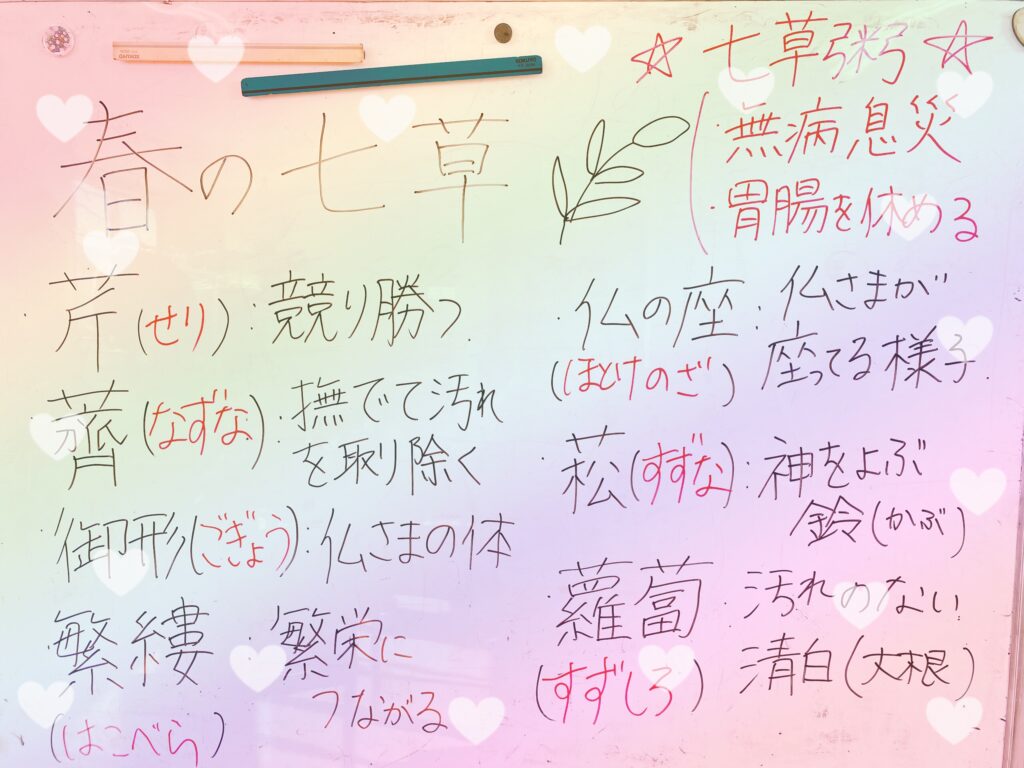 春の七草
☆七草粥☆
・無病息災
・胃腸を休める
・芹(せり):競り勝つ
・薺(なずな):撫でて汚れ
を取り除く
・御形(ごぎょう):仏さまの体
・繁縷
(はこべら)
:繁栄に
つながる
・仏の座:仏さまが
(ほとけのざ)
座ってる様子
・菘(すずな):神をよぶ
鈴(かぶ)
・蘿蔔:汚れのない
(すずしろ)
清白(大根)